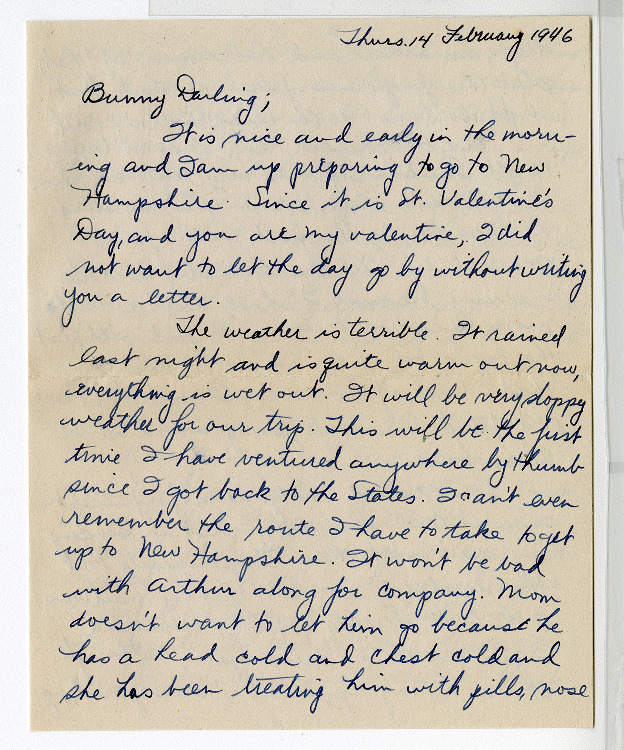 Thurs. 14 February 1946
Bunny Darling;
It is nice and early in the morn-
ing and I am up preparing to go to New
Hampshire. Since it is St. Valentine's
Day, and you are my valentine, I did
not want to let the day go by without writing
you a letter.
The weather is terrible. It rained
last night and is quite warm out now,
everything is wet out. It will be very sloppy
weather for our trip. This will be the first
time I have ventured anywhere by thumb
since I got back to the States. I can't even
remember the route I have to take to get
up to New Hampshire. It won't be bad
with Arthur along for company. Mom
doesn't want to let him go because he
has a head cold and chest cold and
she has been treating him with pills, nose